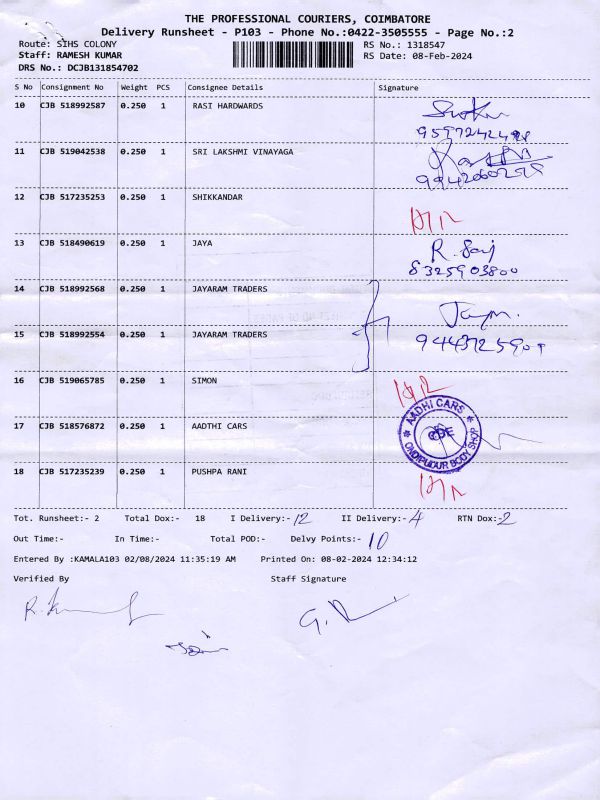 THE PROFESSIONAL COURIERS, COIMBATORE
Delivery Runsheet - P103 - Phone No.:0422-3505555 - Page No.:2
Route: SIHS COLONY RS No.: 1318547
Staff: RAMESH KUMAR RS Date: 08-Feb-2024
DRS No.: DCJB131854702
S No Consignment No Weight PCS Consignee Details Signature
10 CJB 518992587 0.250 1 RASI HARDWARDS
11 CJB 519042538 0.250 1 SRI LAKSHMI VINAYAGA
12 CJB 517235253 0.250 1 SHIKKANDAR
13 CJB 518490619 0.250 1 JAYA
8325903800
14 CJB 518992568 0.250 1 JAYARAM TRADERS
15 CJB 518992554 0.250 1 JAYARAM TRADERS
16 CJB 519065785 0.250 1 SIMON
17 CJB 518576872 0.250 1 AADTHI CARS
AADHI CARS
CBE
ONDIPUDUR BODY SHOP
18 CJB 517235239 0.250 1 PUSHPA RANI
Tot. Runsheet:- 2 Total Dox:- 18 I Delivery:- 12 II Delivery:- 4 RTN Dox:- 2
Out Time:- In Time:- Total POD:- Delvy Points:- 10
Entered By :KAMALA103 02/08/2024 11:35:19 AM Printed On: 08-02-2024 12:34:12
Verified By Staff Signature